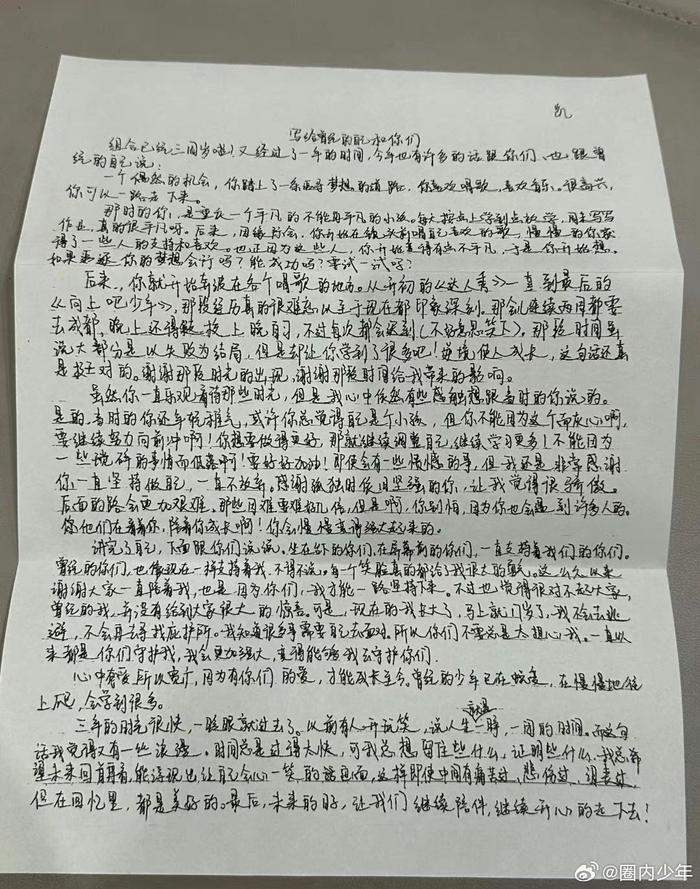 凯
写给曾经的自己和你们
组合已经三周岁啦!又经过了一年的时间,今年也有许多的话跟你们、也跟曾
经的自己说:
一个偶然的机会,你踏上了一条追寻梦想的道路,你喜欢唱歌,喜欢音乐。很高兴,
你可以一路走下来。
那时的你,是重庆一个平凡的不能再平凡的小孩。每天按点上学到点放学,周末写写
作业,真的很平凡呀。后来,因缘际会,你开始在镜头前唱自己喜欢的歌,慢慢的你获
得了一些人的支持和喜欢。也正因为这些人,你开始变得有点不平凡,于是你开始想,
如果这是你的梦想会行吗?能成功吗?要试一试吗?
后来,你就开始奔波在各个唱歌的地方。从开初的《达人秀》一直到最后的
《向上吧少年》,那段经历真的很难忘以至于现在都印象深刻。那会儿连续两周都要
去成都,晚上还得赶上晚自习,不过每次都会迟到(不好意思笑下)。那段时间虽
说大部分是以失败为结局,但是却让你学到了很多吧!逆境使人成长,这句话还真
是挺对的。谢谢那段时光的出现,谢谢那段时间给我带来的影响。
虽然你一直乐观看待那些时光,但是我心中依然有些感触想跟当时的你说的。
是的,当时的你还年轻稚气,或许你总觉得自己是个小孩,但你不能因为这个而灰心啊,
要继续努力向前冲啊!你想要做得更好,那就继续调整自己,继续学习更多!不能因为
一些琐碎的事情而低落啊!要好好加油!即使会有一些愤慨的事,但我还是非常感谢
你一直坚持做自己,一直不放弃。感谢孤独时候且坚强的你,让我觉得很骄傲。
后面的路会更加艰难。那些困难要难上几倍,但是啊,你别怕,因为你也会遇到许多人的。
你他们在看着你,陪着你成长啊!你会慢慢变得强大起来的。
讲完了自己,下面跟你们说说。坐在台下的你们,在屏幕前的你们,一直支持着我们的你们。
曾经的你们,也像现在一样支持着我。不得不说,每一个笑脸真的都给了我很大的鼓励。这么久以来
谢谢大家一直陪着我,也是因为你们,我才能一路坚持下来。不过也觉得很对不起大家,
曾经的我,并没有给到大家很大的惊喜。可是,现在的我长大了,马上就17岁了,我不会去逃
避,不会再去寻找庇护所。我知道很多事需要自己去面对。所以你们不需总是太担心我。一直以
来都是你们守护我,我会更加强大,变得能够我去守护你们。
心中有爱所以勇敢,因为有你们的爱,才能成长至今。曾经的少年已在蜕变,在慢慢地往
上爬,会学到很多。
三年的时光很快,一眨眼就过去了。以前有人开玩笑,说人生就是一时,一阅的时间。而这句
话我觉得又有一些浪漫。时间总是过得太快,可我总想留住些什么,证明些什么。我总希
望未来回首再看,能浮现出让自己会心一笑的画面,这样即使中间有痛苦过,悲伤过,
但在回忆里,都是美好的。最后,未来的日子,让我们继续陪伴,继续开心的走下去!
@圈内少年